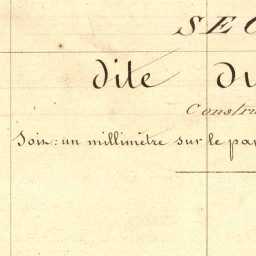 SEC
dite du
Constru
Soit: un millimètre sur le pa